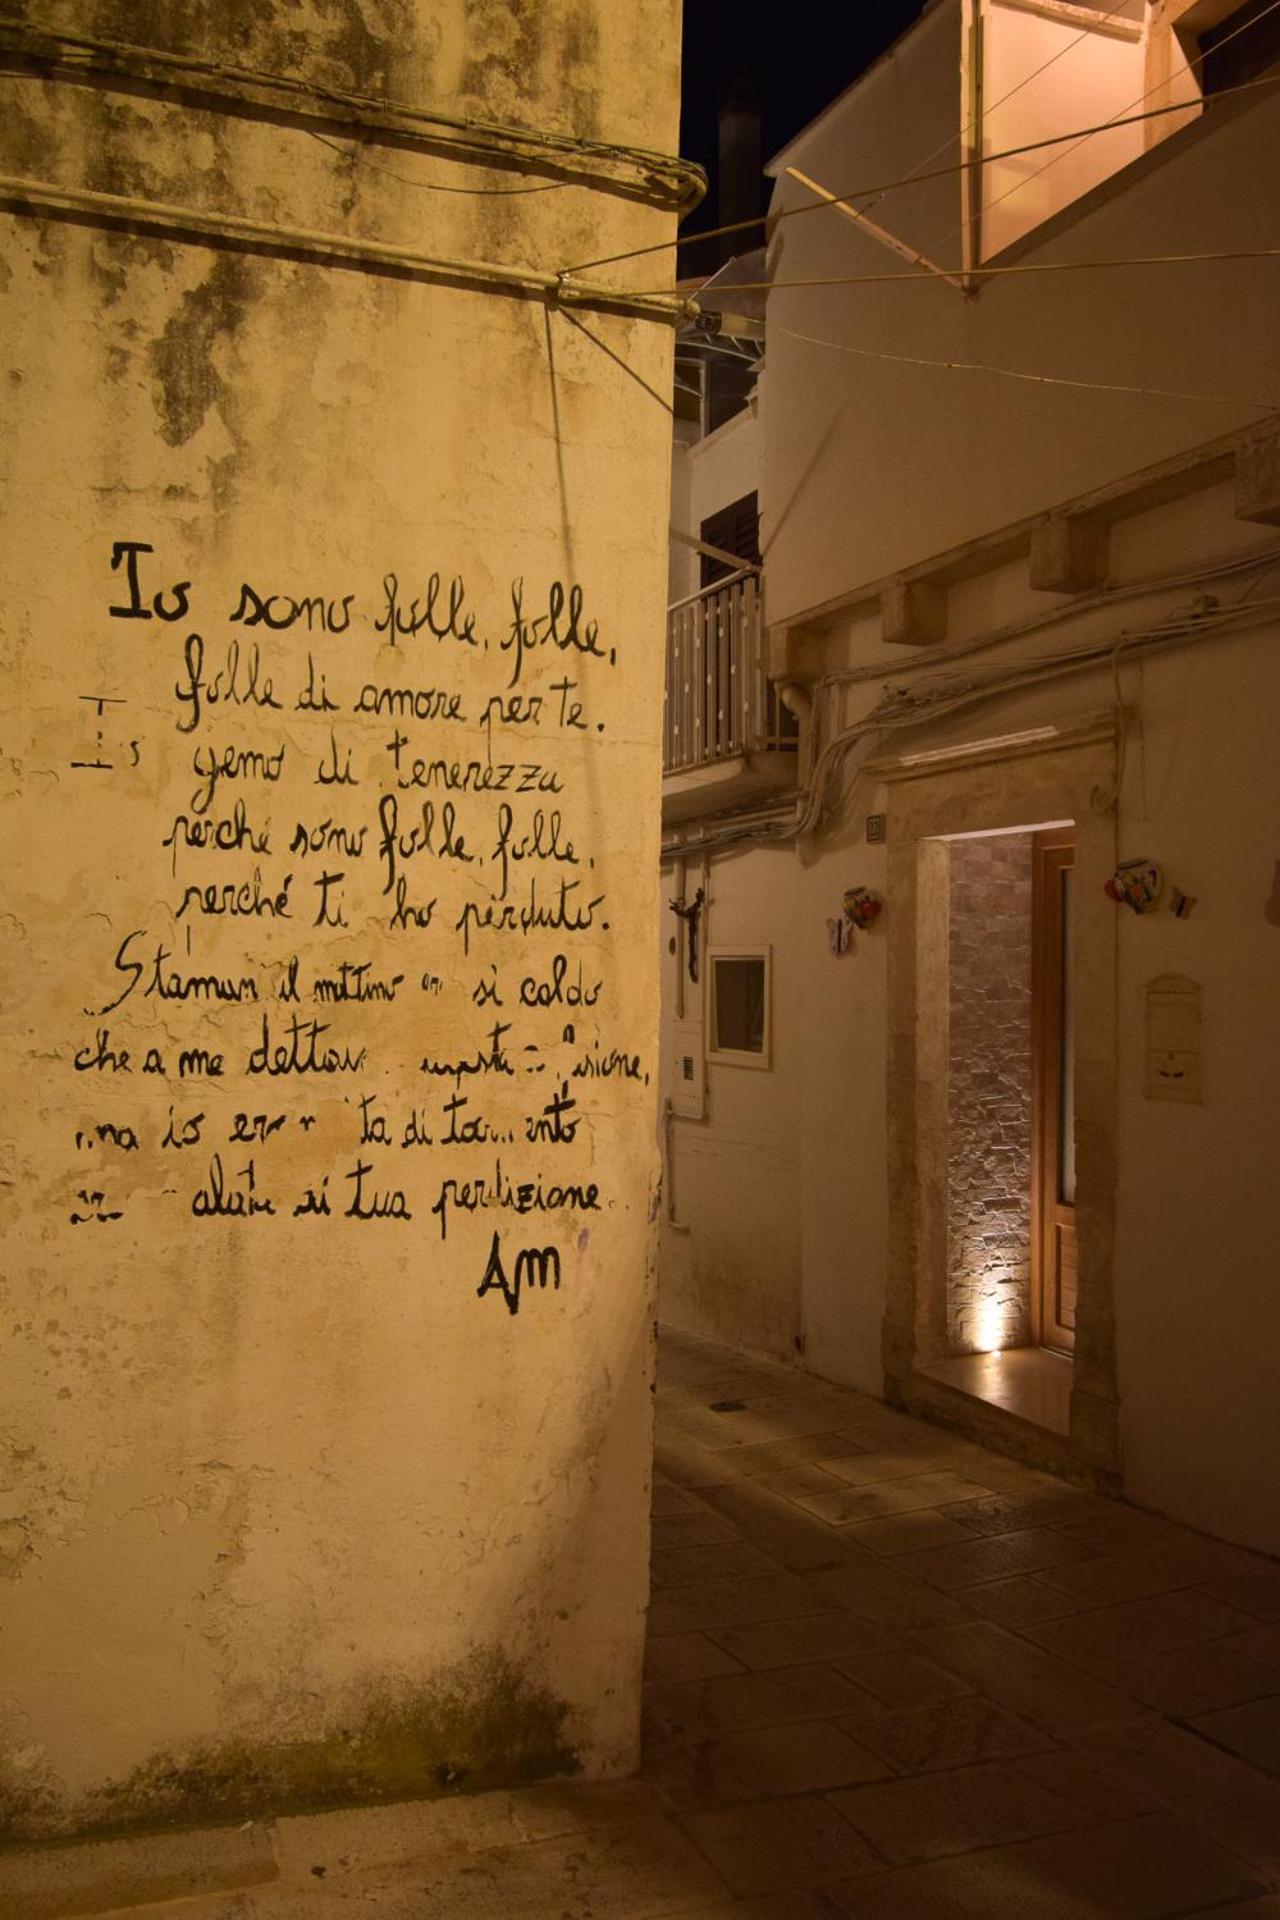 Io sono folle, folle,
folle di amore per te.
gemo di tenerezza
perché sono folle, folle,
perché ti ho perduto.
Staman il mattino si caldo
che a me
io di
di tua perdizione.
AM